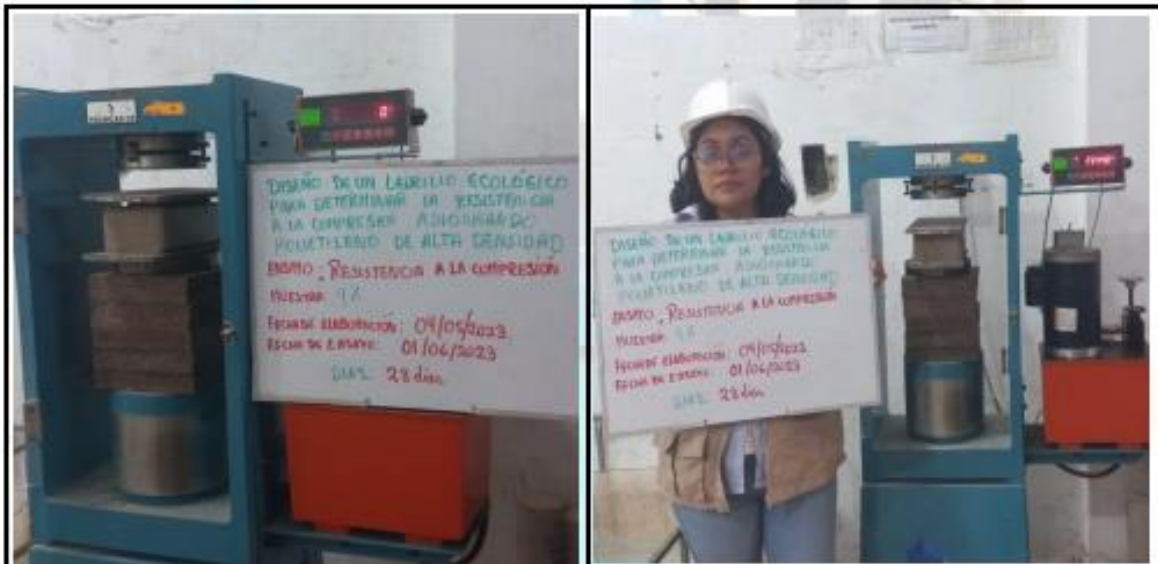 DISEÑO DE UN LADRILLO ECOLÓGICO
PARA DETERMINAR LA RESISTENCIA
A LA COMPRESIÓN ADICIONANDO
POLIETILENO DE ALTA DENSIDAD
ENSAYO: RESISTENCIA A LA COMPRESIÓN
MUESTRA 9%
FECHA DE ELABORACIÓN: 04/05/2023
FECHA DE ENSAYO: 01/06/2023
DIAS 28 dias
0
DISEÑO DE UN LADRILLO ECOLÓGICO
PARA DETERMINAR LA RESISTENCIA
A LA COMPRESIÓN ADICIONANDO
POLIETILENO DE ALTA DENSIDAD
ENSAYO: RESISTENCIA A LA COMPRESIÓN
MUESTRA 9%
FECHA DE ELABORACIÓN: 04/05/2023
FECHA DE ENSAYO: 01/06/2023
DIAS 28 dias